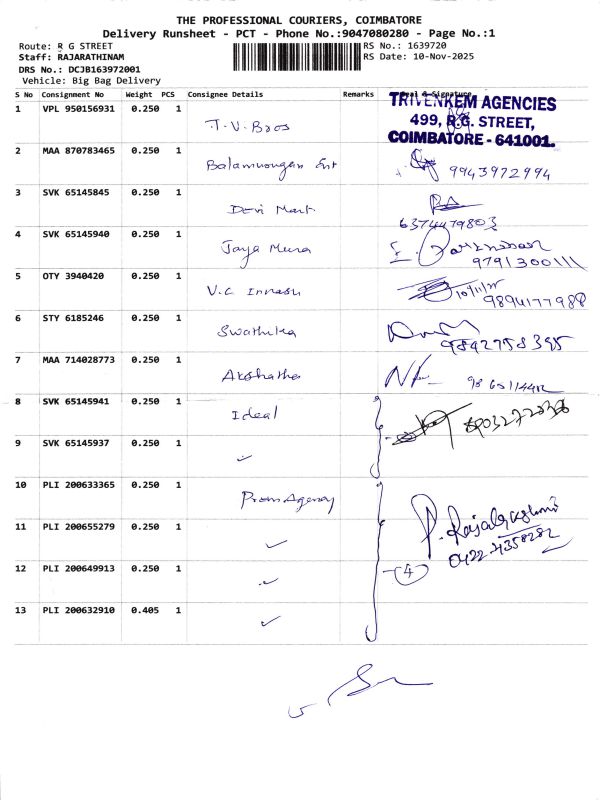 THE PROFESSIONAL COURIERS, COIMBATORE
Delivery Runsheet - PCT - Phone No.:9047080280 - Page No.:1
Route: R G STREET
RS No.: 1639720
Staff: RAJARATHINAM
RS Date: 10-Nov-2025
DRS No.: DCJB163972001
Vehicle: Big Bag Delivery
S No Consignment No Weight PCS Consignee Details Remarks Seal & Signature
1 VPL 950156931 0.250 1 T.V. Bros
TRIVENKEM AGENCIES
499, R.G. STREET,
COIMBATORE - 641001.
2 MAA 870783465 0.250 1 Balamurugan Ent 9943972994
3 SVK 65145845 0.250 1 Devi Mart 6374479803
4 SVK 65145940 0.250 1 Jaya 9791300111
5 OTY 3940420 0.250 1 V.C 10/11/25 9894177988
6 STY 6185246 0.250 1 Swathika 9842758395
7 MAA 714028773 0.250 1 Akshatha
8 SVK 65145941 0.250 1 Ideal
9 SVK 65145937 0.250 1 ✓
10 PLI 200633365 0.250 1 Prem Agency P. Rajalakshmi
0422 4358282
11 PLI 200655279 0.250 1 ✓
12 PLI 200649913 0.250 1 ✓ 4
13 PLI 200632910 0.405 1 ✓